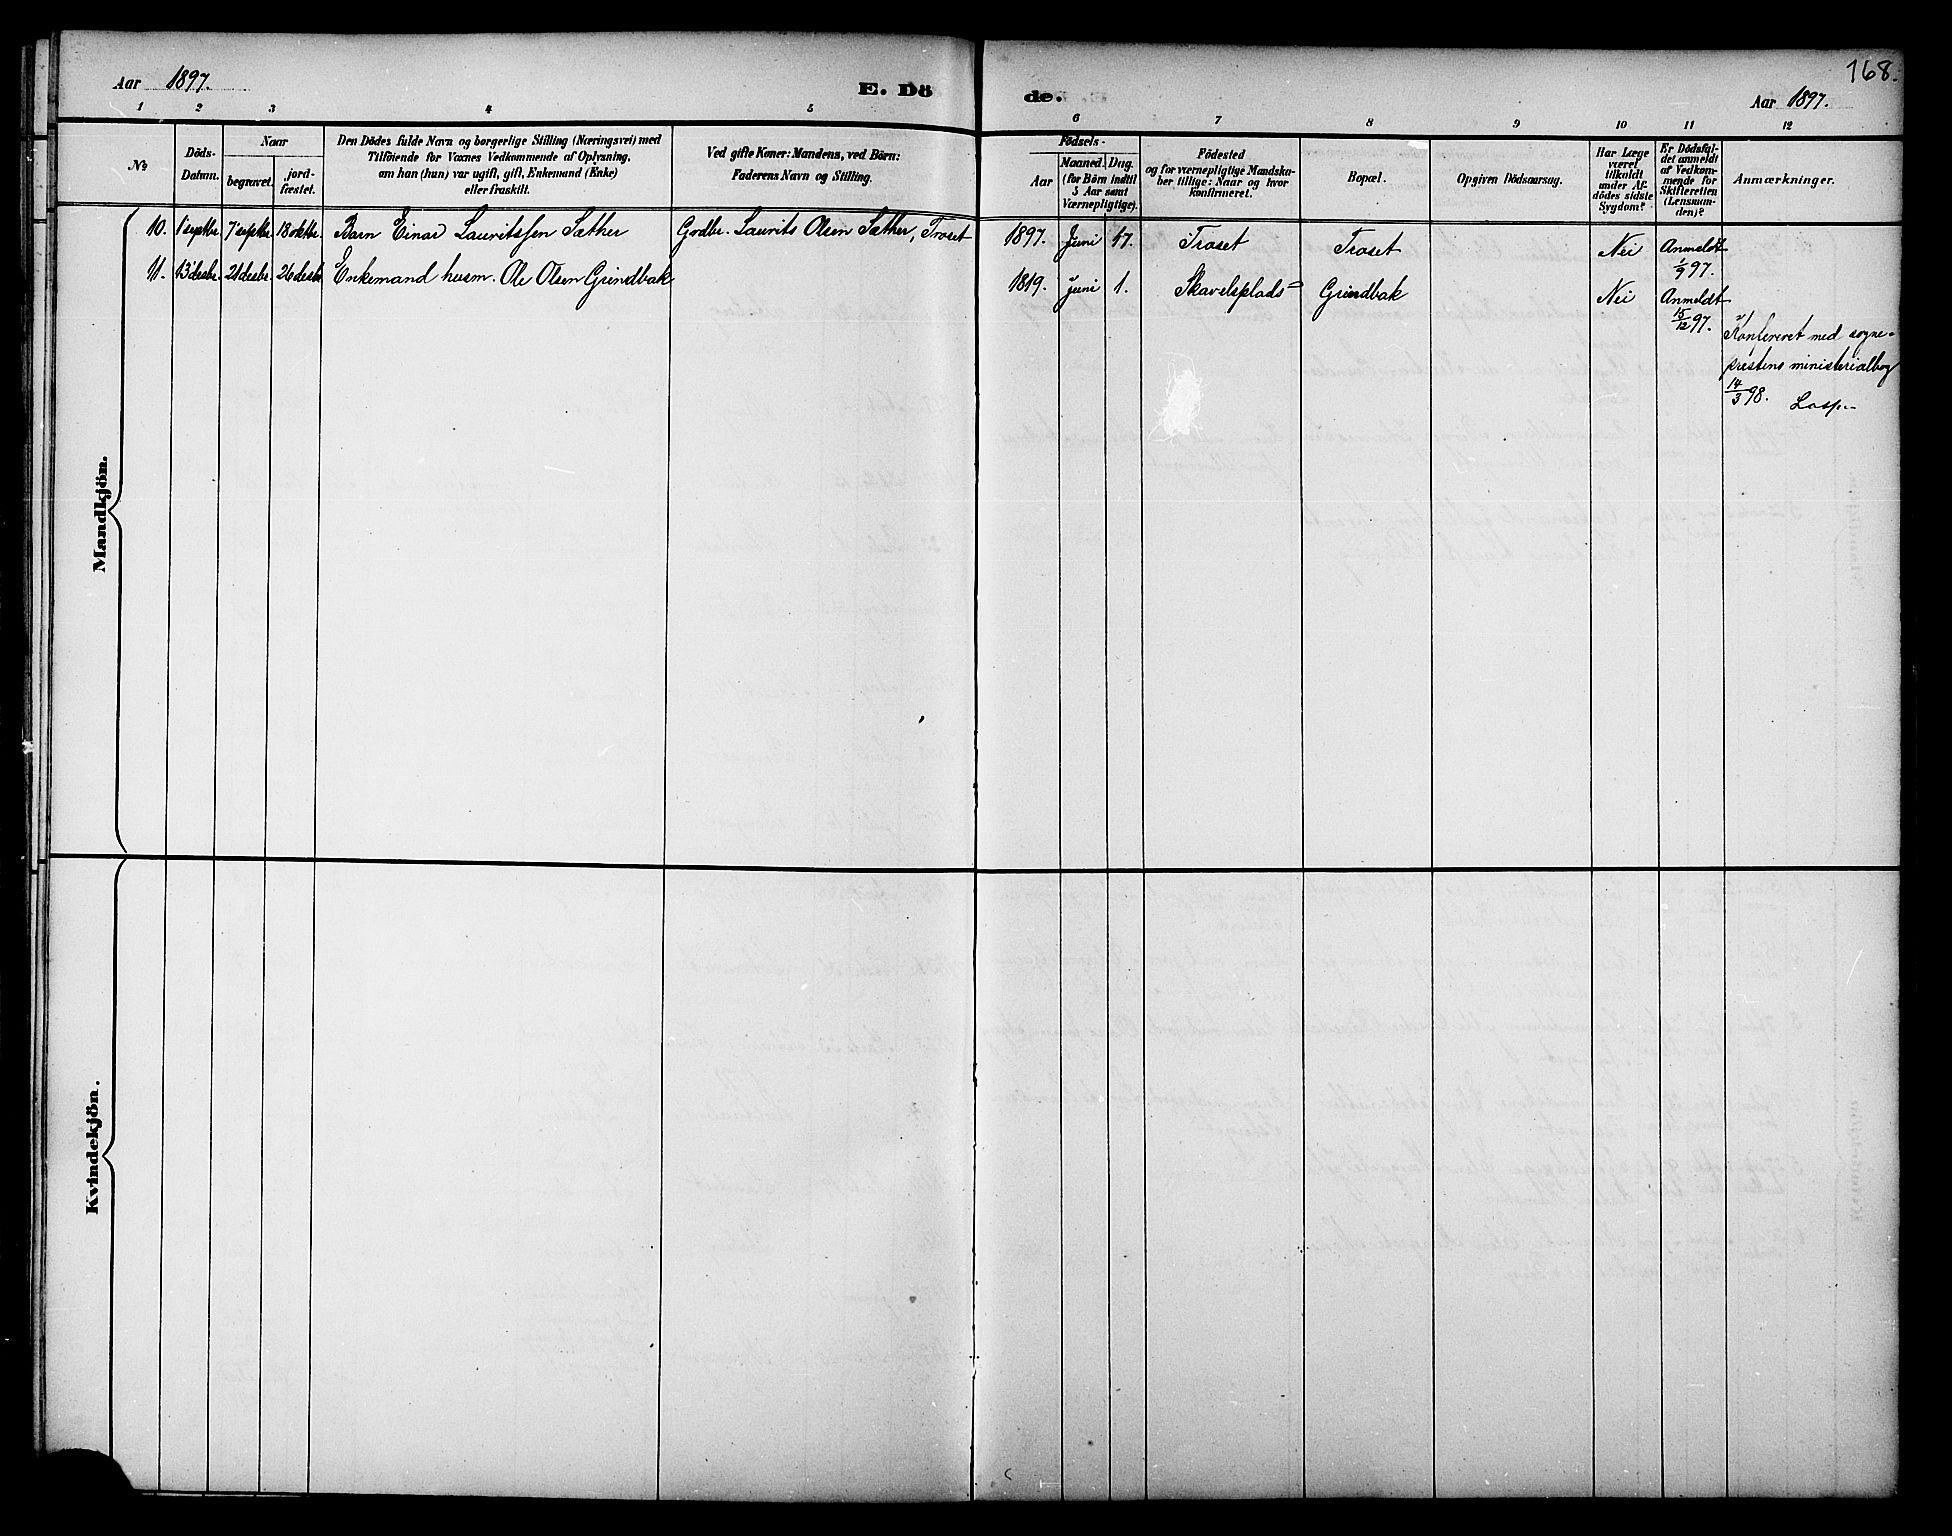 Aar 1897.
E. Dö
de.
168.
Aar 1897.
1 2 3 4 5 6 7 8 9 10 11 12
No
Döds-
Datum.
Naar
begravet.
jord-
fæstet.
Den Dödes fulde Navn og borgerlige Stilling (Næringsvei) med
Tilföiende for Voxnes Vedkommende af Oplysning,
om han (hun) var ugift, gift, Enkemand (Enke)
eller fraskilt.
Ved gifte Koner: Mandens, ved Börn:
Faderens Navn og Stilling.
Födsels-
Aar
Maaned. Dag.
(for Börn indtil
5 Aar samt
Værnepligtige).
Födested
og for værnepligtige Mandska-
ber tillige: Naar og hvor
konfirmeret.
Bopæl.
Opgiven Dödsaarsag.
Har Læge
været
tilkaldt
under Af-
dödes sidste
Sygdom?
Er Dödsfal-
det anmeldt
af Vedkom-
mende for
Skifteretten
(Lensman-
den)?
Anmærkninger.
10. 1 septbr. 7 septbr. 18 oktbr. Barn Einar Lauritssen Sæther Godbr. Laurits Olsen Sæther, Troset 1897. Juni 17. Troset Troset Nei Anmeldt
1/9 97.
11. 13 desbr. 21 desbr. 26 desbr. Enkemand husm. Ole Olsen Grindbak 1819. Juni 1. Skavelsplads Grindbak Nei Anmeldt
15/12 97.
Konfereret med sogne-
prestens ministerialbog
14/3 98.
Mandkjön.
Kvindekjön.